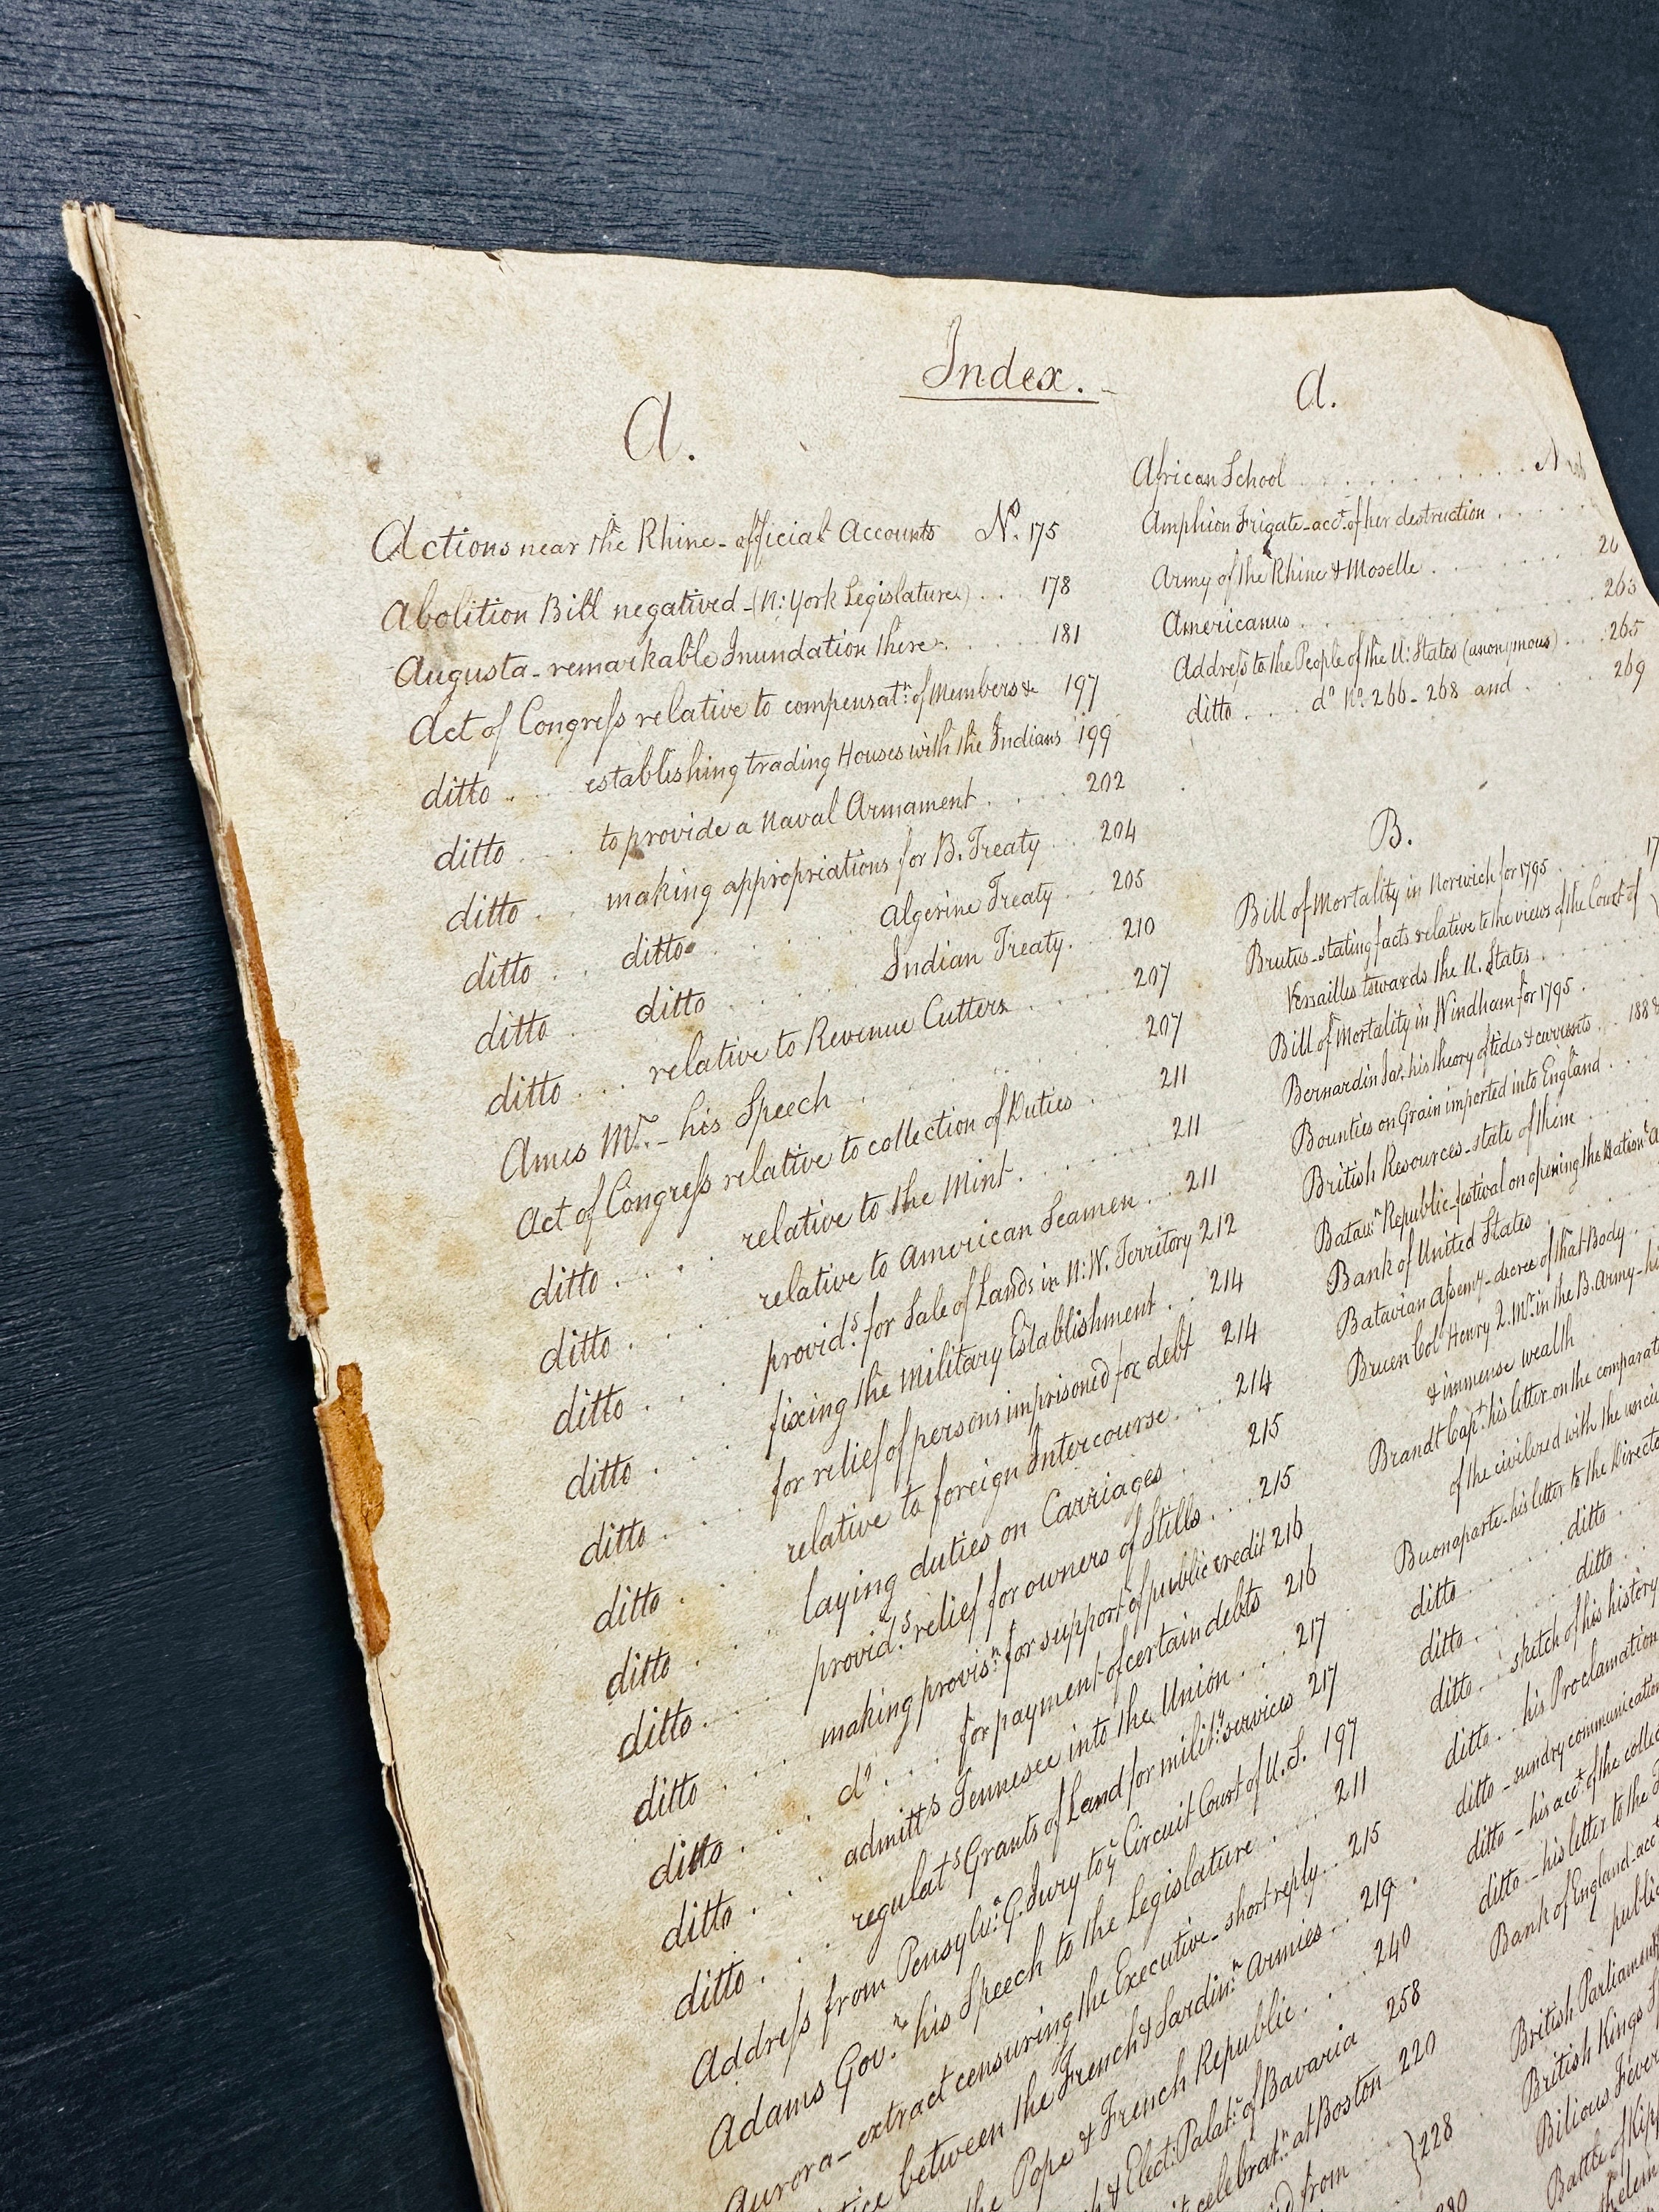 Index.
A.
Actions near the Rhine - official Accounts No. 175
Abolition Bill negatived - (N: York Legislature) . . . 178
Augusta - remarkable Inundation there . . . . . 181
Act of Congress relative to compensatn: of Members &c 197
ditto . . . . establishing trading Houses with the Indians 199
ditto . . . . to provide a Naval Armament . . . . 202
ditto . . . making appropriations for B. Treaty . . . 204
ditto . . . ditto . . . . . . Algerine Treaty . . . 205
ditto . . ditto . . . . . . Indian Treaty . . . 210
ditto . . . relative to Revenue Cutters . . . . . 207
Ames Mr. - his Speech . . . . . . . 207
Act of Congress relative to collection of Duties . . . 211
ditto . . . . relative to the Mint . . . . . . 211
ditto . . . . relative to American Seamen . . 211
ditto . . . . provids. for Sale of Lands in N: W. Territory 212
ditto . . . . fixing the Military Establishment . . . 214
ditto . . . . for relief of persons imprisoned for debt 214
ditto . . . . relative to foreign Intercourse . . . 214
ditto . . . . laying duties on Carriages . . . 215
ditto . . . . provids. relief for owners of Stills . . . 215
ditto . . . . making provisn. for support of public credit 216
ditto . . . do . . . for payment of certain debts 216
ditto . . . . admitts Tennesee into the Union . . . 217
ditto . . . . regulats Grants of Land for mility: services 217
Address from Pensylva. G. Jury to ye Circuit Court of U.S. 197
Adams Govr. his Speech to the Legislature . . . 211
Aurora - extract censuring the Executive - short reply . . 215
between the French & Sardinn. Armies . . . 219 .
the Pope & French Republic . . . . 240
& Elect: Palatn: of Bavaria 258
celebratn. at Boston 220
from . . . } 228
A.
African School . . . . . . . . .
Amphion Frigate - acct. of her destruction . . . . .
Army of the Rhine & Moselle . . . . . .
Americanus . . . . . . . . . 263
Address to the People of the U: States (anonymous) . . . 265
ditto . . . . do No. 266 - 268 and . . . . 269
B.
Bill of Mortality in Norwich for 1795 . . . .
Brutus - stating facts relative to the views of the Court of
Versailles towards the U. States . . . .
Bill of Mortality in Windham for 1795 . . .
Bernardin Jas. his theory of tides & currents . . 188 &
Bounties on Grain imported into England . . . .
British Resources - state of them . . . .
Batavn. Republic - festival on opening the Nationl.
Bank of United States . . . . .
Batavian Assemy. - decree of that Body . . .
Bruen Col. Henry L. Mr. in the B. Army - his
& immense wealth . . .
Brandt Capt. his letter on the comparat
of the civilized with the unciv
Buonaparte - his letter to the Directo
ditto . . . . . ditto . . .
ditto . . . . . ditto . . .
ditto . . sketch of his history
ditto . . . his Proclamation
ditto - sundry communication
ditto - his acct. of the colle
ditto - his letter to the
Bank of England - acct
public
British Parliament
British Kings
Bilious Fever
Battle of